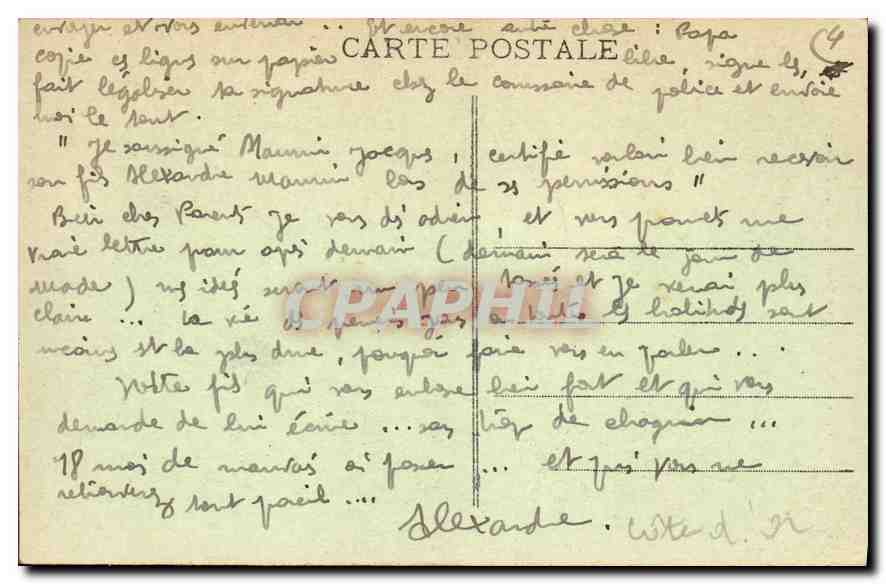 envoyer et vous envoyer .. Et encore autre chose : Papa
4
CARTE POSTALE
copie ces lignes sur papier libre, signe les,
fait légaliser ta signature chez le commissaire de police et envoie
moi le tout.
" Je soussigné Maumin Jacques, certifie vouloir bien recevoir
son fils Alexandre Maumin lors de ses permissions "
Bien chers Parents je vous dis adieu et vous promets une
vraie lettre pour après demain ( demain sera le jour de
) mes idées seront un peu et je verrai plus
claire ... La vie ici à toutes les habitudes sont
et la plus dure, pourquoi vous en parler ...
Votre fils qui vous embrasse bien fort et qui vous
demande de lui écrire ... sans trop de chagrin ...
18 mois de mauvais à passer ... et puis vous me
retrouverez tout pareil ....
Alexandre. Côte d'Or
CPAPHIL